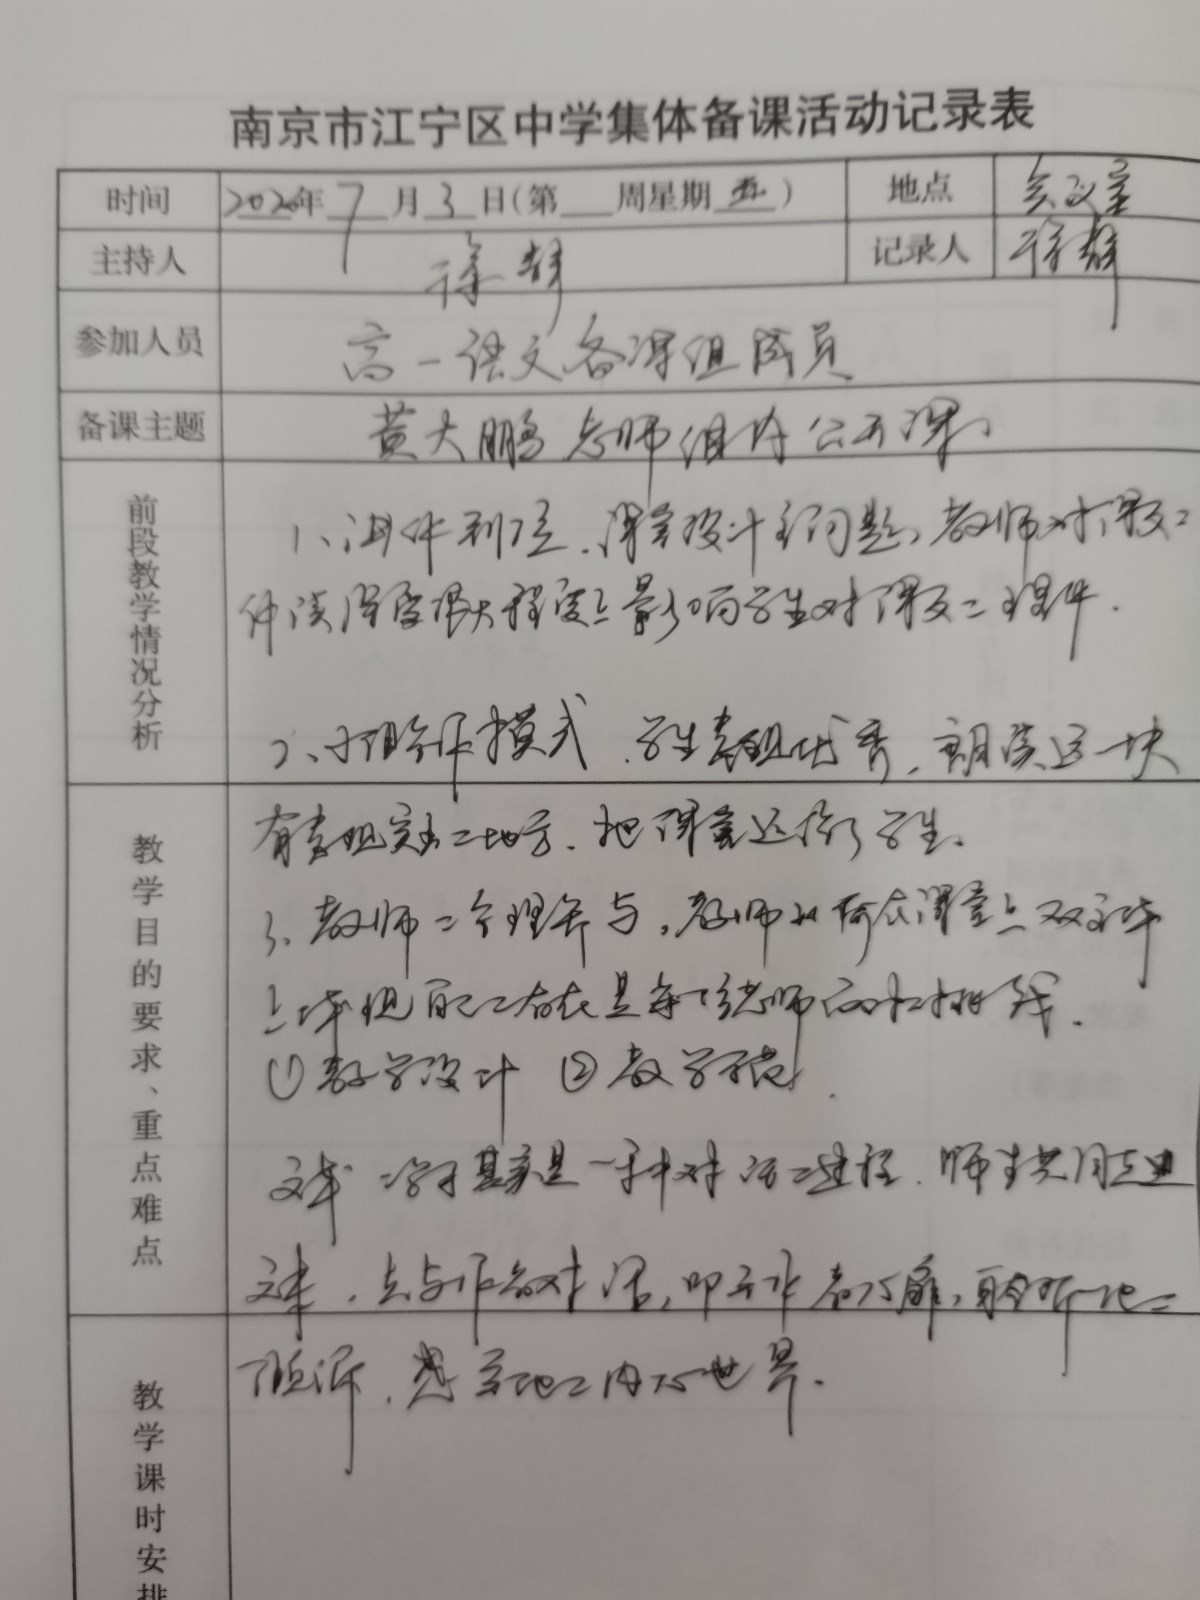 南京市江宁区中学集体备课活动记录表
时间 2020年 7 月 3 日(第 周星期 五 ) 地点 会议室
主持人 徐静 记录人 徐静
参加人员 高一语文备课组成员
备课主题 黄大鹏老师组内公开课
前段教学情况分析
1、课堂设计 问题,教师对课文
解读深度很大程度上影响学生对课文 理解.
2、小组合作模式.学生表现优秀,朗读这一块
教学目的要求、重点难点
有表现突出 地方.把课堂还给了学生.
3、教师 ,教师如何在课堂上
是每一位老师的
①教学设计 ②教学
文本 其实是一种对话 过程.师生共同走进
文本,去与作者对话,叩开作者心扉,聆听他
倾诉,感受他 内心世界.
教学课时安排